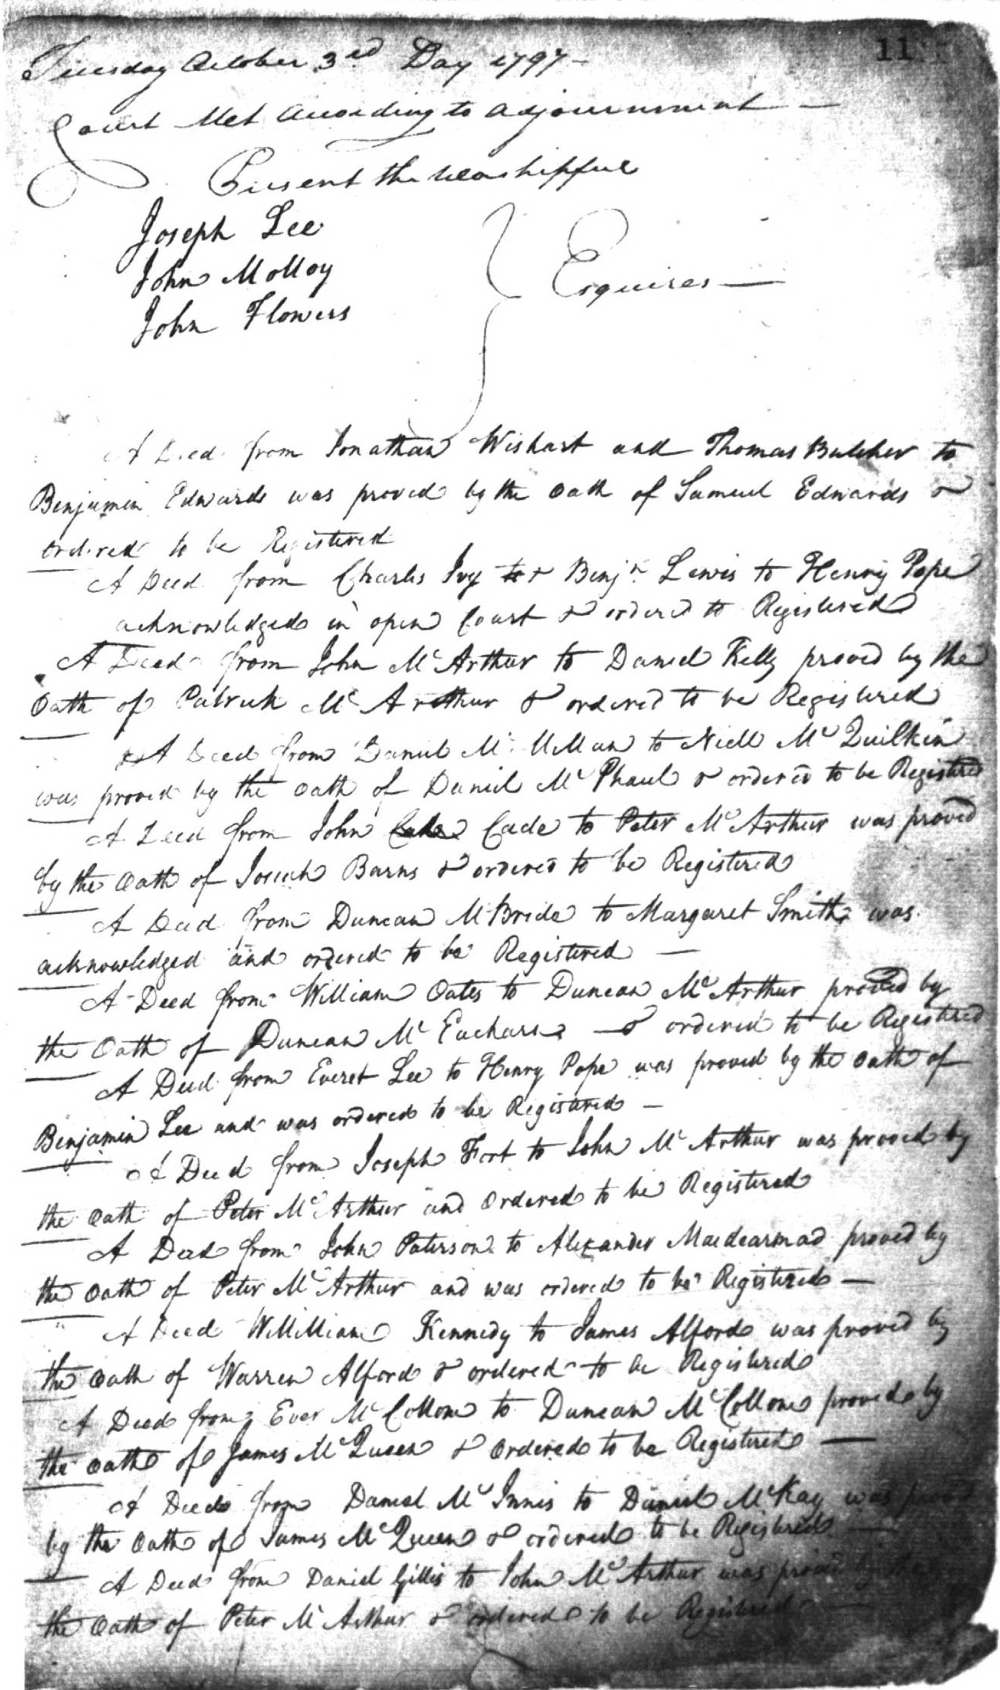 11
Tuesday October 3rd Day 1797 -
Court Met According to adjournment -
Present the Worshipful
Joseph Lee
John Molloy
John Flowers
Esquires -
A Deed from Jonathan Wishart and Thomas Butcher to
Benjamin Edwards was proved by the Oath of Samuel Edwards &
ordered to be Registered
A Deed from Charles Ivy & Benjn Lewis to Henry Pope
acknowledged in open Court & ordered to Registered
A Deed from John McArthur to Daniel Kelly proved by the
Oath of Patrick McArthur & ordered to be Registered
A Deed from Daniel McMillan to Niell McQuilkin
was proved by the Oath of Daniel McPhaul & ordered to be Registered
A Deed from John Cade to Peter McArthur was proved
by the Oath of Josiah Barns & ordered to be Registered
A Deed from Duncan McBride to Margaret Smith was
acknowledged and ordered to be Registered -
A Deed from William Oates to Duncan McArthur proved by
the Oath of Duncan McEacharn & ordered to be Registered
A Deed from Everet Lee to Henry Pope was proved by the Oath of
Benjamin Lee and was ordered to be Registered -
A Deed from Joseph Fort to John McArthur was proved by
the Oath of Peter McArthur and Ordered to be Registered
A Deed from John Paterson to Alexander Macdearmad proved by
the Oath of Peter McArthur and was ordered to be Registered -
A Deed Willilliam Kennedy to James Alford was proved by
the Oath of Warren Alford & ordered to be Registered
A Deed from Ever McCollom to Duncan McCollom proved by
the Oath of James McQueen & Ordered to be Registered -
A Deed from Daniel McInnis to Daniel McKay was
by the Oath of James McQueen & ordered to be Registered -
A Deed from Daniel Gillis to John McArthur was proved
the Oath of Peter McArthur & ordered to be Registered -